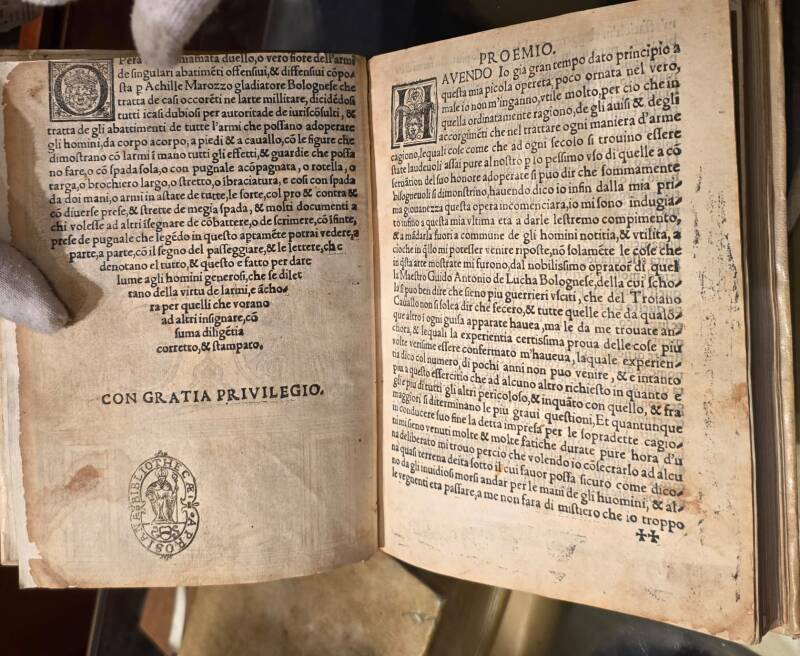 OPera chiamata duello, o vero fiore dell'armi
de singulari abatimēti offensiui, & diffensiui cōpo/
sta p Achille Marozzo gladiatore Bolognese che
tratta de casi occorēti ne larte millitare, dicidēdosi
tutti i casi dubiosi per autoritade de iurisconsulti, &
tratta de gli abattimenti de tutte l'armi che possano adoperare
gli homini, da corpo a corpo, a piedi & a cauallo, cō le figure che
dimostrano cō larmi i mano tutti gli effetti, & guardie che possa/
no fare, o cō spada sola, o con pugnale acōpagnata, o rotella, o
targa, o brochiero largo, o stretto, o ībraciatura, e cosi con spada
da doi mani, o armi in astate de tutte, le sorte, col pro & contra &
cō diuerse prese, & strette de megia spada, & molti documenti a
chi volesse ad altri īsegnare de cōbattere, o de scrimere, cō finte,
prese de pugnale che legēdo in questo aptamēte potrai vedere, a
parte, a parte, cō il segno del passeggiare, & le lettere, che
denotano el tutto, & questo e fatto per dare
lume agli homini generosi, che se dilet
tano della virtu de larmi, e ācho/
ra per quelli che vorano
ad altri insignare, cō
suma diligētia
corretto, & stampato.
CON GRATIA PRIVILEGIO.
BIBLIOTHECÆ APROSIANÆ
PROEMIO.
HAVENDO Io già gran tempo dato principio a
questa mia picola opereta, poco ornata nel vero,
ma se io non m'inganno, vtile molto, per cio che in
quella ordinatamente ragiono, de gli auisi & degli
accorgimēti che nel trattare ogni maniera d'arme
cagiono, lequali cose come che ad ogni secolo si trouino essere
state laudeuoli assai pure al nostro p lo pessimo vso di quelle a cō
seruation del suo honore adoperate si puo dir che sommamente
bisogneuoli si dimostrino, hauendo dico io infin dalla mia pri/
ma giouanezza questa opera incomenciara, io mi sono indugia/
to infino a questa mia vltima eta a darle lestremo compimento,
& a mādarla fuori a commune de gli homini notitia, & vtilita, a
cioche in qllo mi potesser venire riposte, nō solamēte le cose che
in qsta arte mostrate mi furono, dal nobilissimo oprator di quel
la Maestro Guido Antonio de Lucha Bolognese, della cui scho/
la si puo ben dire che sieno piu guerrieri vsciti, che del Troiano
Cauallo non si solea dir che fecero, & tutte quelle che da qualō/
que altro i ogni guisa apparate hauea, ma le da me trouate an/
chora, & lequali la experientia certissima proua delle cose piu
volte verissime essere confermato m'haueua, laquale experien/
tia dico col numero, di pochi anni non puo venire, & e intanto
piu a questo essercitio che ad alcuno altro richiesto in quanto e
gli e piu di tutti gli altri pericoloso, & inquāto con quello, & fra
maggiori si diterminano le piu graui questioni, Et quantunque
in conducere suo fine la detta impresa per le sopradette cagio/
ni mi seno venuti molte & molte fatiche durate pure hora d'u
na deliberato mi trouo percio che volendo io cōsecrarlo ad alcu
na quasi terrena deita sotto il cui fauor possa sicuro come dico/
no da gli inuidiosi morsi andar per le mani de gli huomini, & al/
le veguenti eta passare, a me non fara di mistiero che io troppo
‡‡